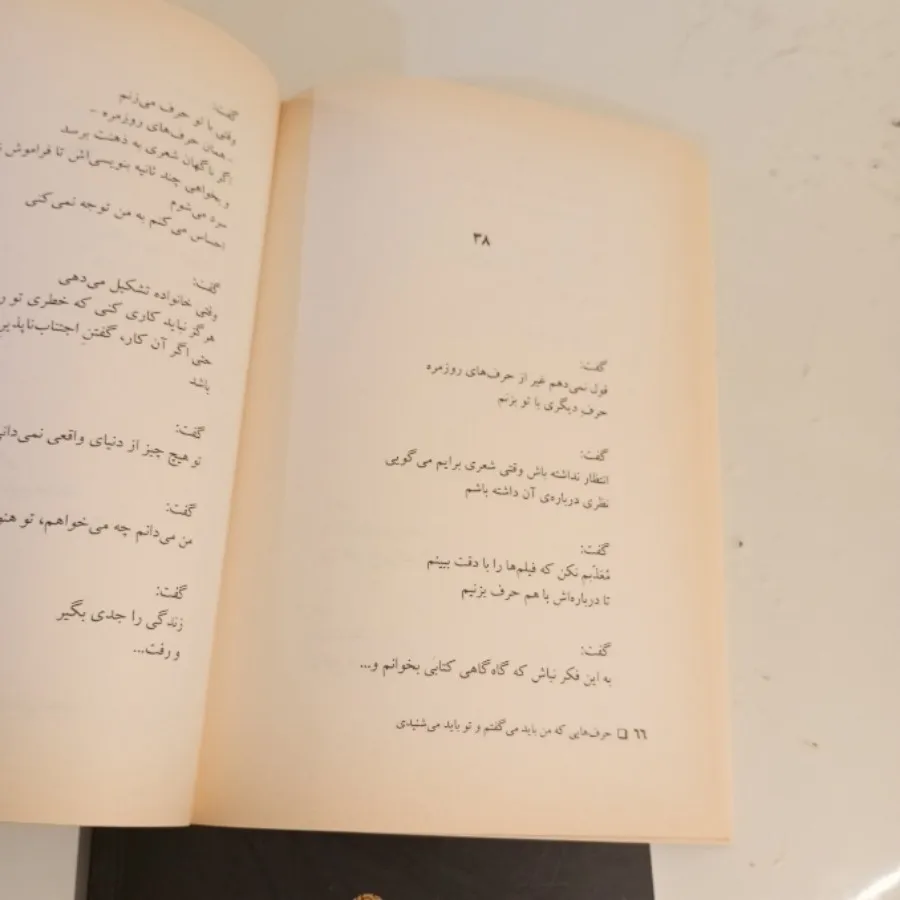 ۳۸
گفت:
قول نمی‌دهم غیر از حرف‌های روزمره
حرفِ دیگری با تو بزنم
گفت:
انتظار نداشته باش وقتی شعری برایم می‌گویی
نظری درباره‌ی آن داشته باشم
گفت:
مُعذّبم نکن که فیلم‌ها را با دقت ببینم
تا درباره‌اش با هم حرف بزنیم
گفت:
به این فکر نباش که گاه‌گاهی کتابی بخوانم و...
۶۶ ❑ حرف‌هایی که من باید می‌گفتم و تو باید می‌شنیدی
گفت:
وقتی با تو حرف می‌زنم
- همان حرف‌های روزمره -
اگر ناگهان شعری به ذهنت برسد
و بخواهی چند ثانیه بنویسی‌اش تا فراموش
سرد می‌شوم
احساس می‌کنم به من توجه نمی‌کنی
گفت:
وقتی خانواده تشکیل می‌دهی
هرگز نباید کاری کنی که خطری تو
حتی اگر آن کار، گفتنِ اجتناب‌ناپذیر
باشد
گفت:
تو هیچ چیز از دنیای واقعی نمی‌دانی
گفت:
من می‌دانم چه می‌خواهم، تو
گفت:
زندگی را جدی بگیر
و رفت...